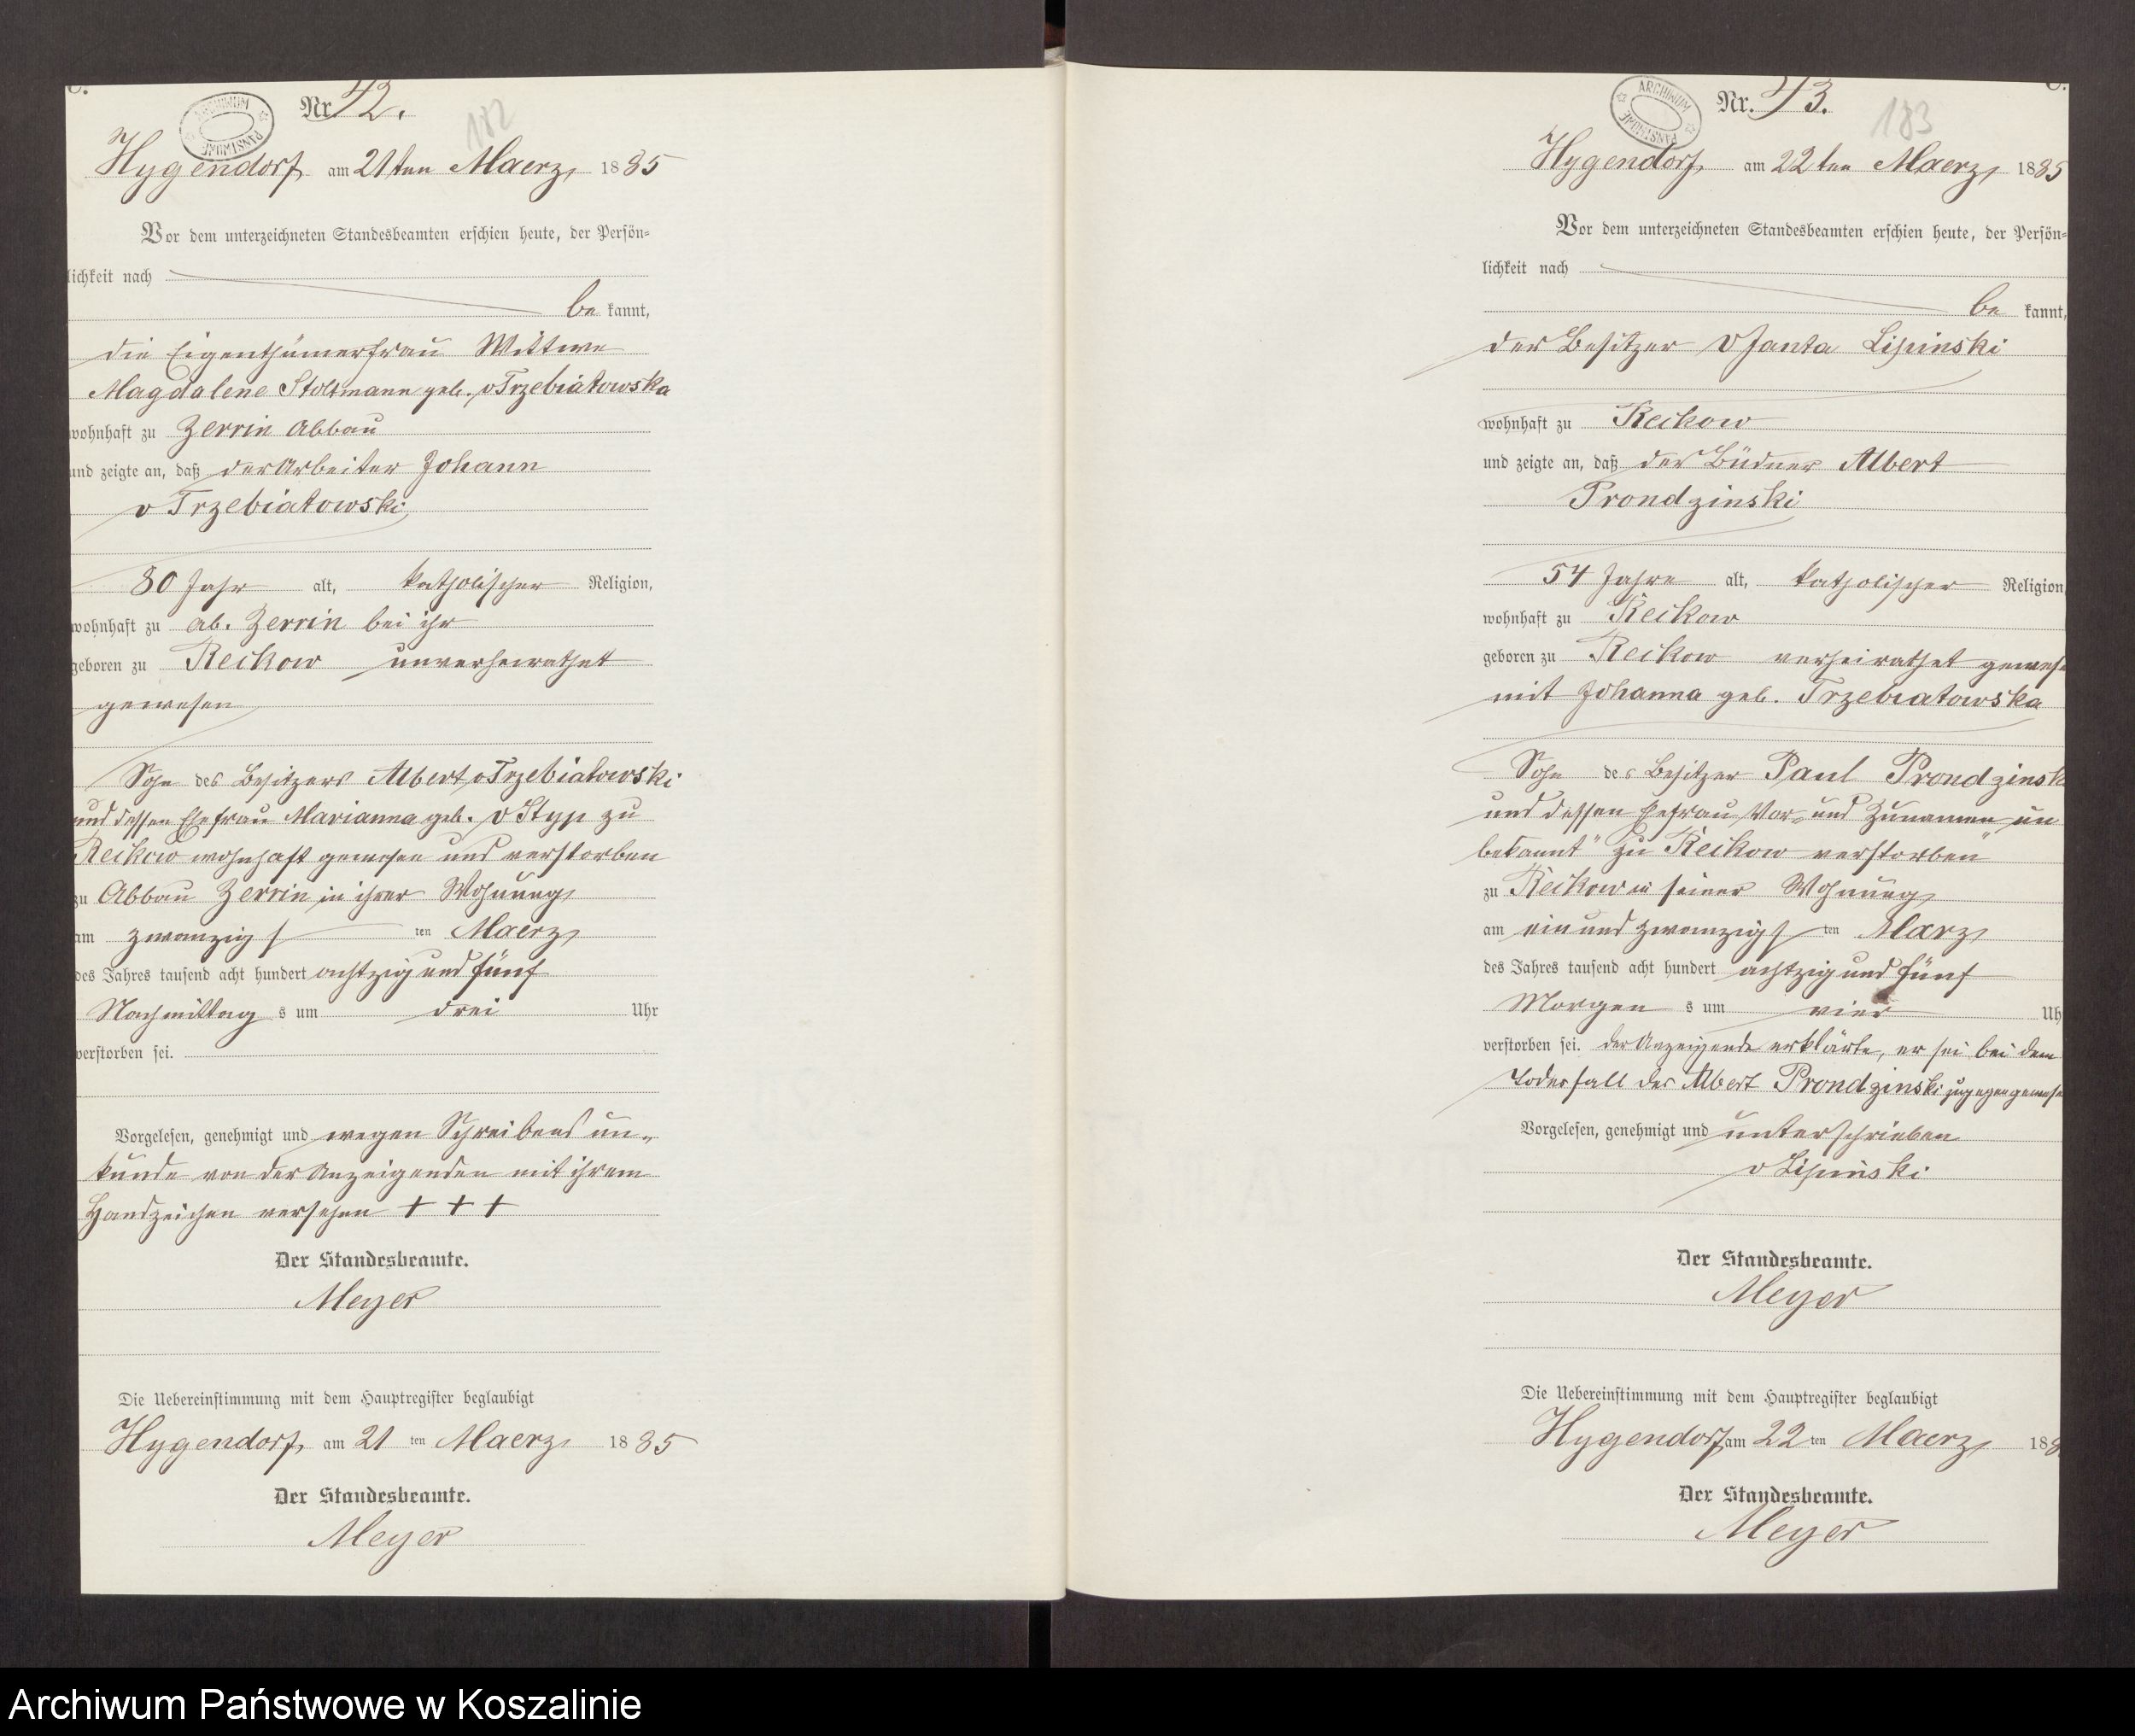 C.
Nr 42.
182
ARCHIWUM PAŃSTWOWE
Hygendorf am 21ten Maerz 1885
Vor dem unterzeichneten Standesbeamten erschien heute, der Persön-
lichkeit nach
be kannt,
die Eigenthümerfrau Wittwe
Magdalene Stoltmann geb. v Trzebiatowska
wohnhaft zu Zerrin Abbau
und zeigte an, daß der Arbeiter Johann
v Trzebiatowski
80 Jahr alt, katholischer Religion,
wohnhaft zu ab. Zerrin bei ihr
geboren zu Reckow unverheirathet
gewesen
Sohn des Besitzers Albert v Trzebiatowski
und dessen Ehefrau Marianna geb. v Styp zu
Reckow wohnhaft gewesen und verstorben
zu Abbau Zerrin in ihrer Wohnung
am zwanzigsten Maerz
des Jahres tausend acht hundert achtzig und fünf
Nachmittag s um drei Uhr
verstorben sei.
Vorgelesen, genehmigt und wegen Schreibens un-
kunde von der Anzeigenden mit ihrem
Handzeichen versehen + + +
Der Standesbeamte.
Meyer
Die Uebereinstimmung mit dem Hauptregister beglaubigt
Hygendorf am 21 ten Maerz 1885
Der Standesbeamte.
Meyer
C.
Nr. 43.
183
ARCHIWUM PAŃSTWOWE
Hygendorf am 22ten Maerz 1885
Vor dem unterzeichneten Standesbeamten erschien heute, der Persön-
lichkeit nach
be kannt,
der Besitzer v Janta Lipinski
wohnhaft zu Reckow
und zeigte an, daß der Büdner Albert
Prondzinski
54 Jahre alt, katholischer Religion,
wohnhaft zu Reckow
geboren zu Reckow verheirathet gewese
mit Johanna geb. Trzebiatowska
Sohn des Besitzer Paul Prondzinsk
und dessen Ehefrau Vor- und Zunamen un
bekannt" zu Reckow verstorben"
zu Reckow in seiner Wohnung
am ein und zwanzigsten März
des Jahres tausend acht hundert achtzig und fünf
Morgen s um vier Uh
verstorben sei. der Anzeigende erklärte, er sei bei dem
Todesfall des Albert Prondzinski zugegen gewese
Vorgelesen, genehmigt und unterschrieben
v Lipinski
Der Standesbeamte.
Meyer
Die Uebereinstimmung mit dem Hauptregister beglaubigt
Hygendorf am 22 ten Maerz 188
Der Standesbeamte.
Meyer
Archiwum Państwowe w Koszalinie